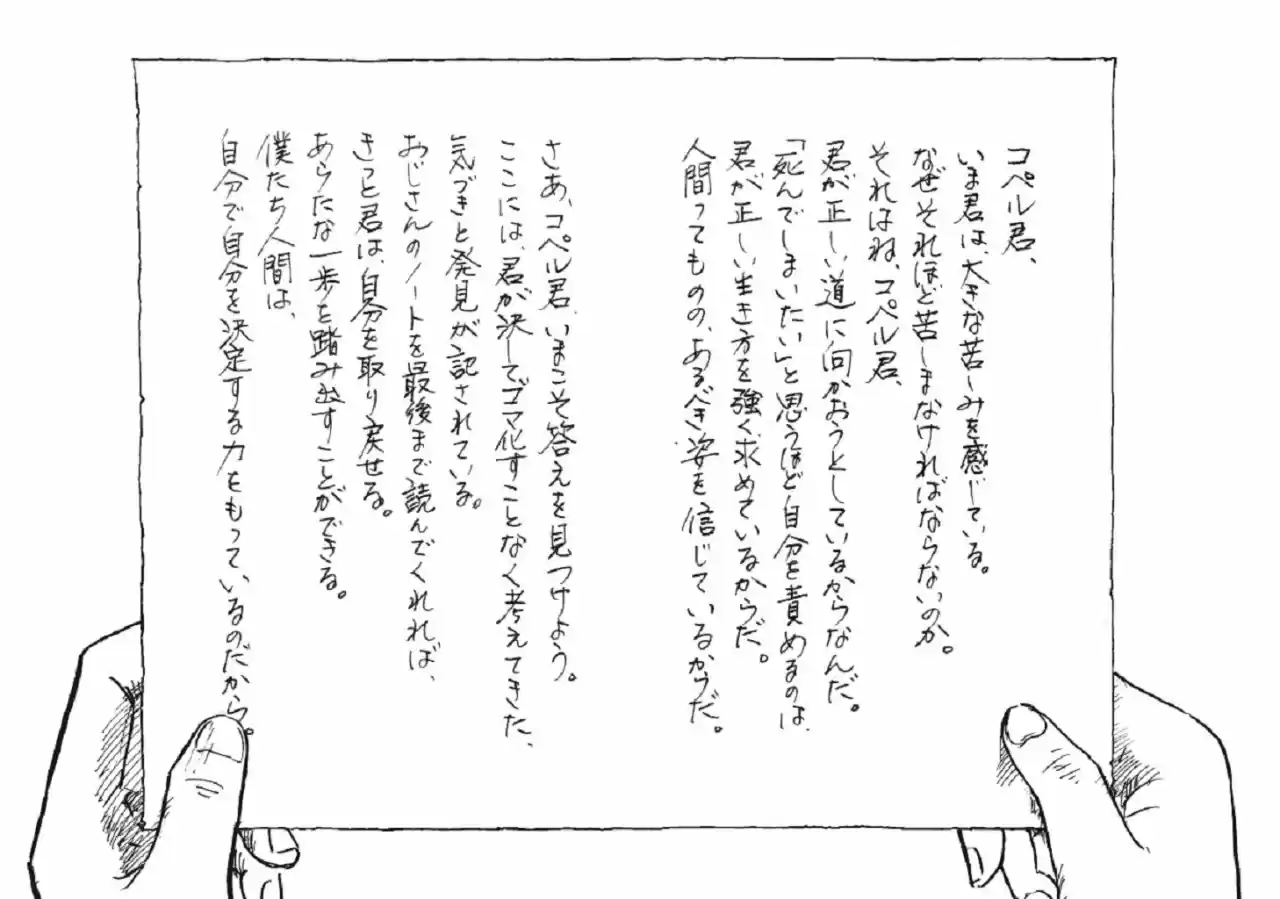 コペル君、
いま君は、大きな苦しみを感じている。
なぜそれほど苦しまなければならないのか。
それはね、コペル君、
君が正しい道に向かおうとしているからなんだ。
「死んでしまいたい」と思うほど自分を責めるのは、
君が正しい生き方を強く求めているからだ。
人間ってものの、あるべき姿を信じているからだ。
さあ、コペル君、いまこそ答えを見つけよう。
ここには、君が決してゴマ化すことなく考えてきた、
気づきと発見が記されている。
おじさんのノートを最後まで読んでくれれば、
きっと君は、自分を取り戻せる。
あらたな一歩を踏み出すことができる。
僕たち人間は、
自分で自分を決定する力をもっているのだから。